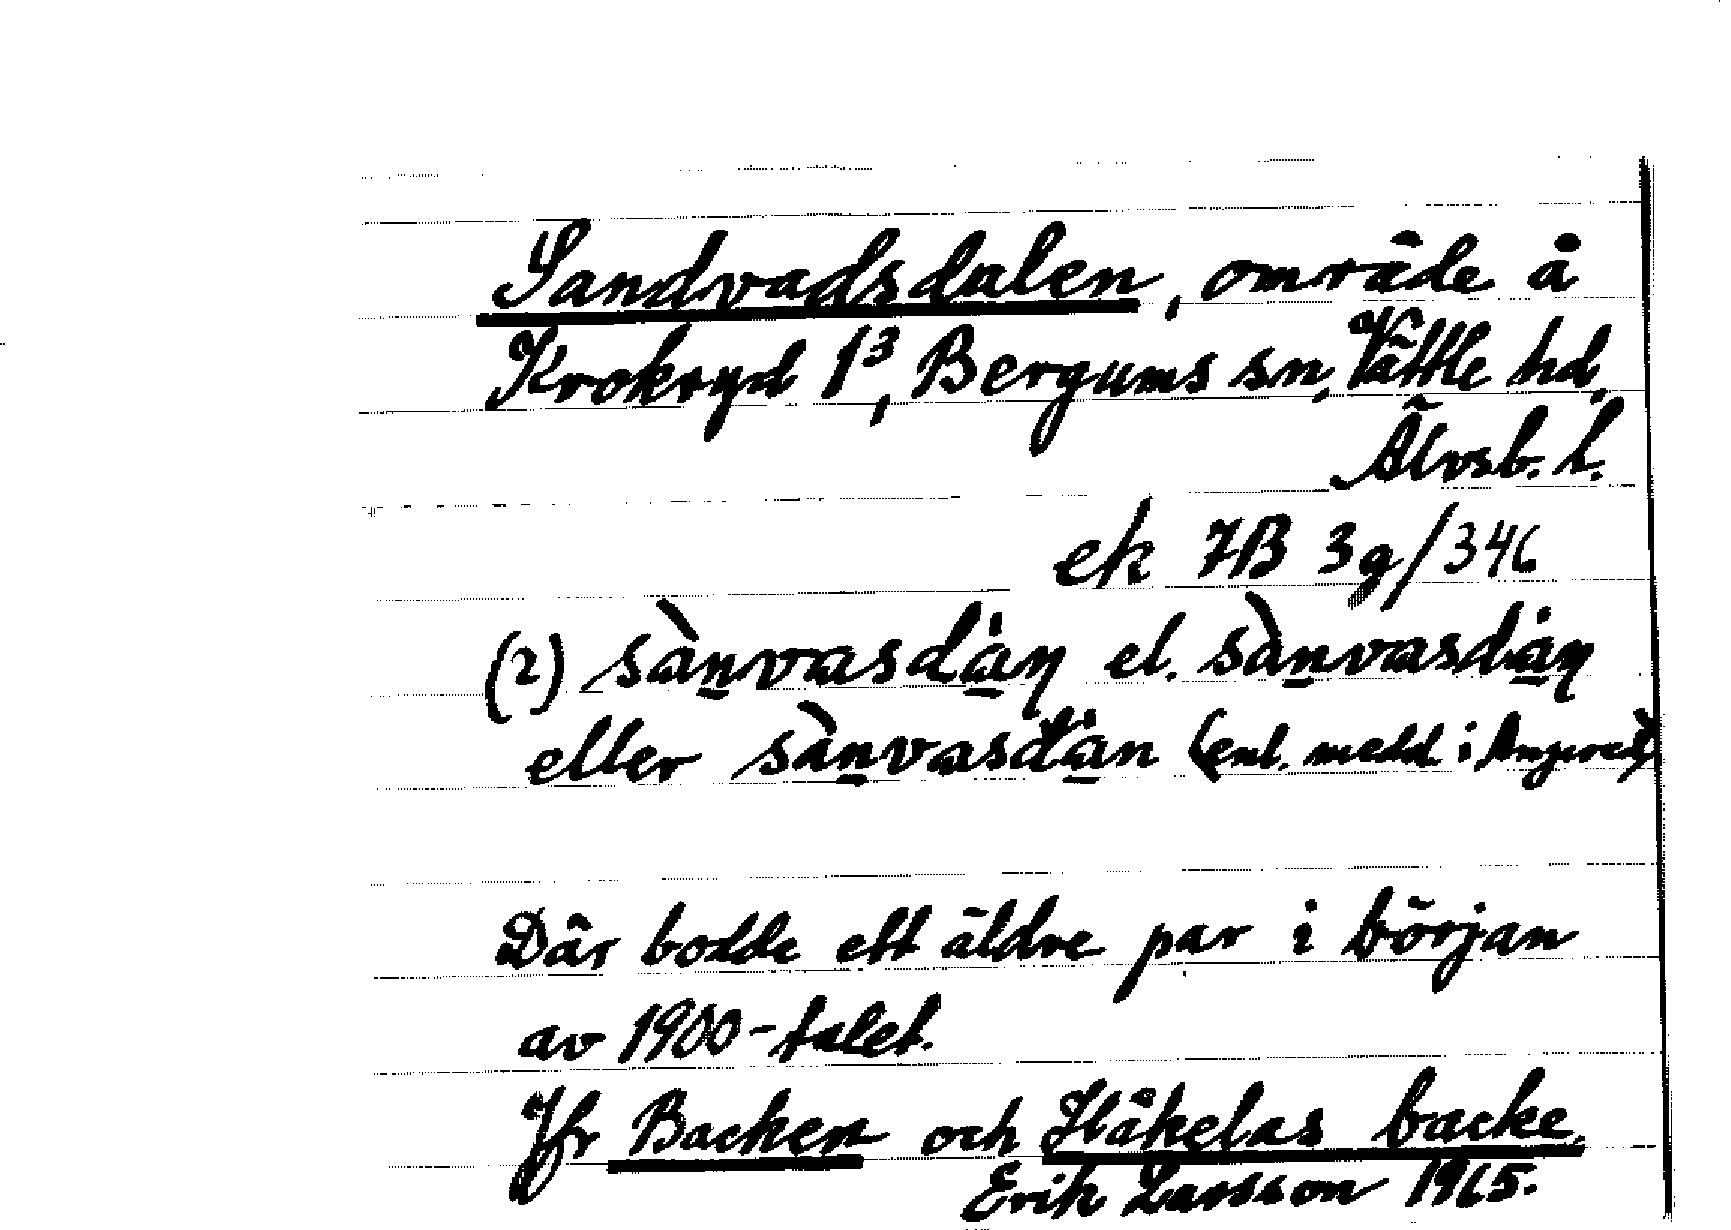 Sandvadsdalen, område å
Krokryd 1³, Bergums sn, Vättle hd,
Älvsb. l.
ek 7B 3g/346
(2) sànvasdȧn el. sànvasdȧn
eller sànvasdȧn (enl. medd. i Angered)
Där bodde ett äldre par i början
av 1900-talet.
Jfr Backen och Håkelas backe.
Erik Larsson 1965.